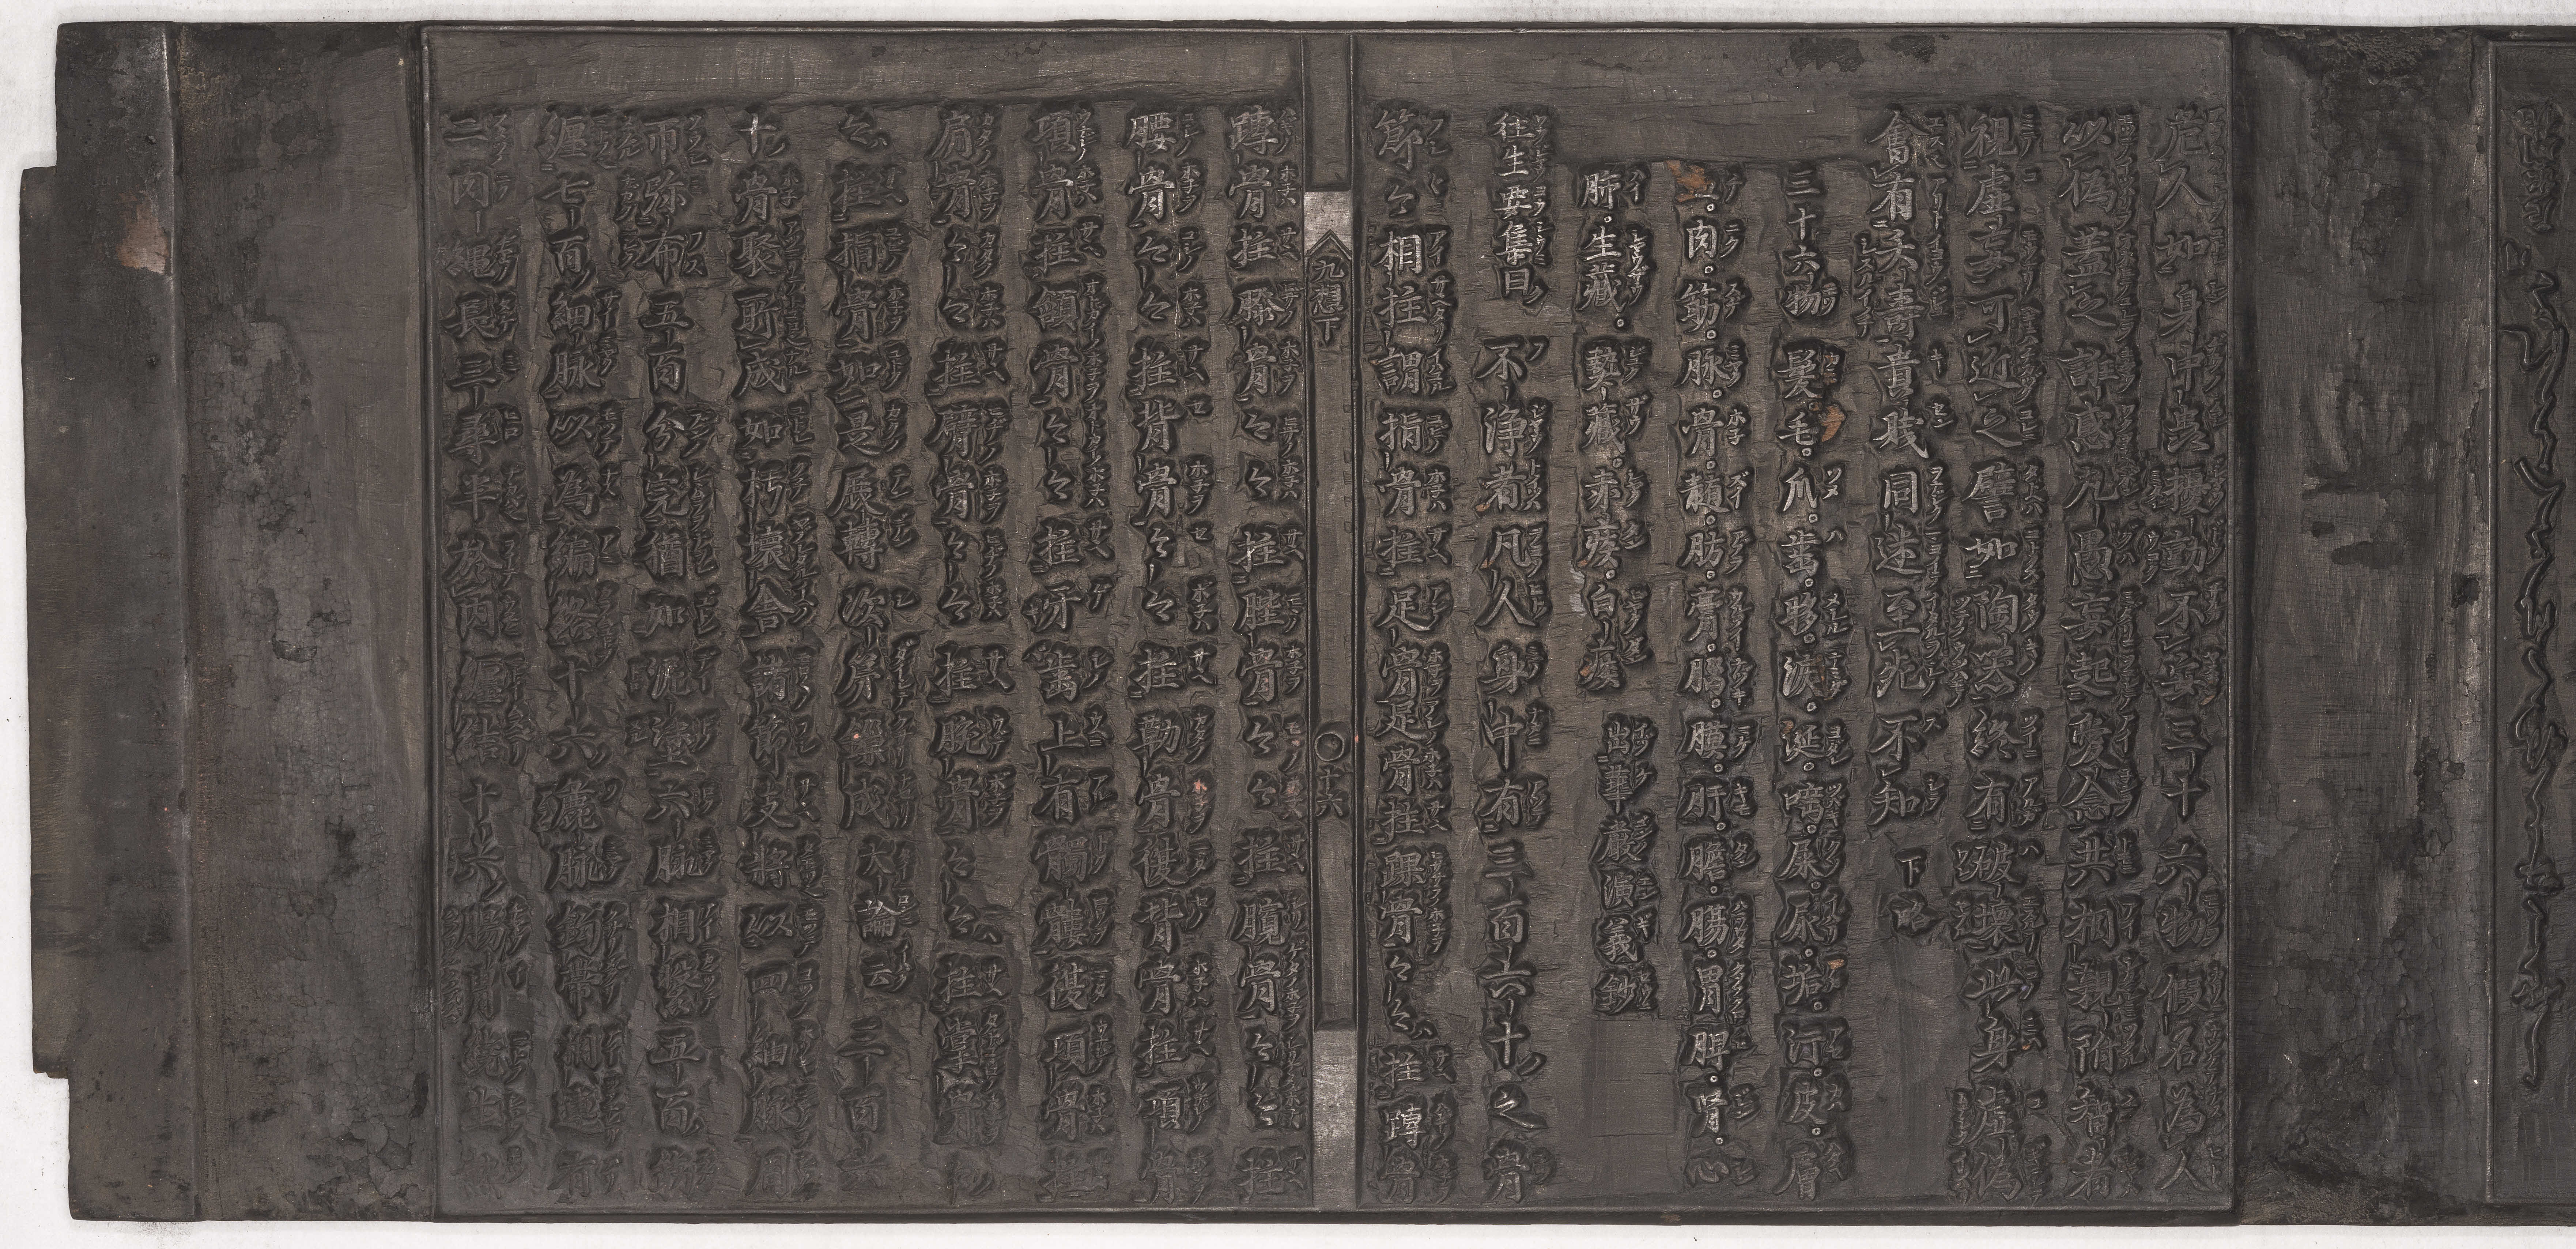 危久如身中共搖動不安三十六物假名為人
以偽蓋之誑惑凡愚妄起愛念共相親附智者
視虛妄可近之譬如陶器終有破壞此身虛偽
奮有夭壽貴賎同迷至死不知 下略
三十六物 髮毛。爪。齒。眵。淚。涎。唾。屎。尿。垢。汗。皮。膚
血。肉。筋。脉。骨。髓。肪。膏。腦。膜。肝。膽。膓。胃。脾。腎。心
肺。生藏。熟藏。赤痰。白痰 出華嚴演義鈔
往生要集曰 不淨者凡人身中有三百六十之骨
節々相拄謂指骨拄足骨足骨拄踝骨々々拄䏝骨
九想下 ○十六
䏝骨拄膝骨々々拄䏶骨々々拄臗骨々々拄
腰骨々々拄背骨々々拄肋骨復背骨拄項骨
項骨拄頷骨々々拄牙齒上有髑髏復項骨拄
肩骨々々拄臂骨々々拄腕骨々々拄掌骨
々拄指骨如是展轉次第鏁成 大論云 三百六
十骨聚所成如朽壞舍諸節支將以四細脉周
帀弥布五百分完猶如泥塗六脉相繫五百
纒七百細脉以為編絡十六麁脉鉤帶相連有
二肉繩長三尋半於內纒結十六膓胃繞生